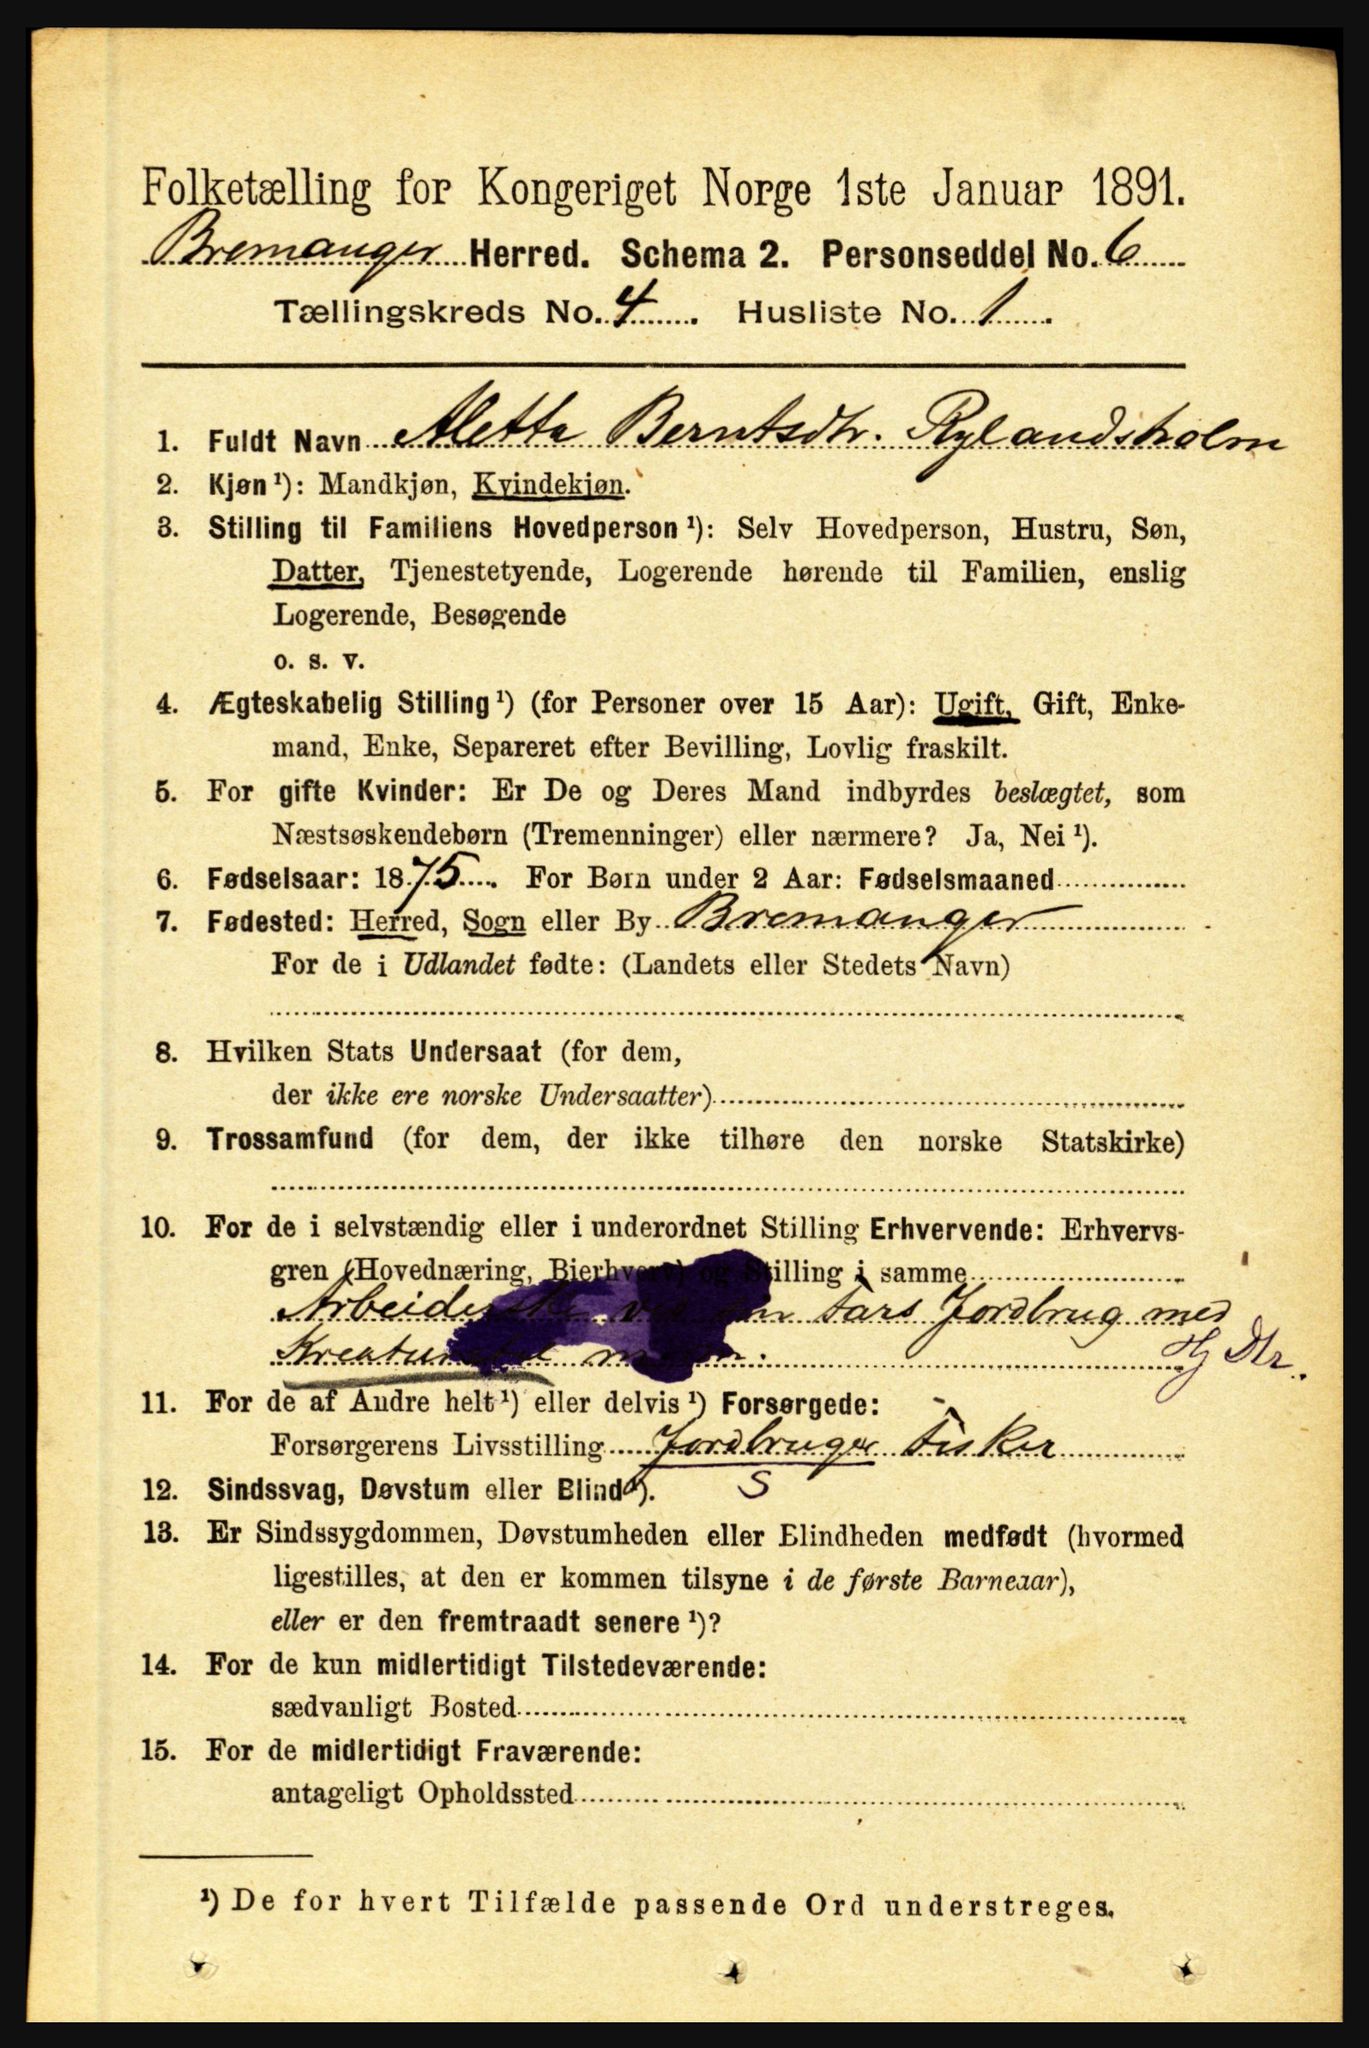 Folketælling for Kongeriget Norge 1ste Januar 1891.
Bremanger Herred. Schema 2. Personseddel No. 6
Tællingskreds No. 4. Husliste No. 1.
1. Fuldt Navn Aletta Berntsdtr. Rylandsholm
2. Kjøn ¹): Mandkjøn, Kvindekjøn.
3. Stilling til Familiens Hovedperson ¹): Selv Hovedperson, Hustru, Søn,
Datter, Tjenestetyende, Logerende hørende til Familien, enslig
Logerende, Besøgende
o. s. v.
4. Ægteskabelig Stilling ¹) (for Personer over 15 Aar): Ugift, Gift, Enke-
mand, Enke, Separeret efter Bevilling, Lovlig fraskilt.
5. For gifte Kvinder: Er De og Deres Mand indbyrdes beslægtet, som
Næstsøskendebørn (Tremenninger) eller nærmere? Ja, Nei ¹).
6. Fødselsaar: 1875. For Børn under 2 Aar: Fødselsmaaned
7. Fødested: Herred, Sogn eller By Bremanger
For de i Udlandet fødte: (Landets eller Stedets Navn)
8. Hvilken Stats Undersaat (for dem,
der ikke ere norske Undersaatter)
9. Trossamfund (for dem, der ikke tilhøre den norske Statskirke)
10. For de i selvstændig eller i underordnet Stilling Erhvervende: Erhvervs-
gren (Hovednæring, Bierhverv) og Stilling i samme
Arbeiderske ved Fars Jordbrug med
Hj Dtr.
11. For de af Andre helt ¹) eller delvis ¹) Forsørgede:
Forsørgerens Livsstilling Jordbruger Fisker
12. Sindssvag, Døvstum eller Blind ¹). S
13. Er Sindssygdommen, Døvstumheden eller Blindheden medfødt (hvormed
ligestilles, at den er kommen tilsyne i de første Barneaar),
eller er den fremtraadt senere ¹)?
14. For de kun midlertidigt Tilstedeværende:
sædvanligt Bosted
15. For de midlertidigt Fraværende:
antageligt Opholdssted
¹) De for hvert Tilfælde passende Ord understreges.